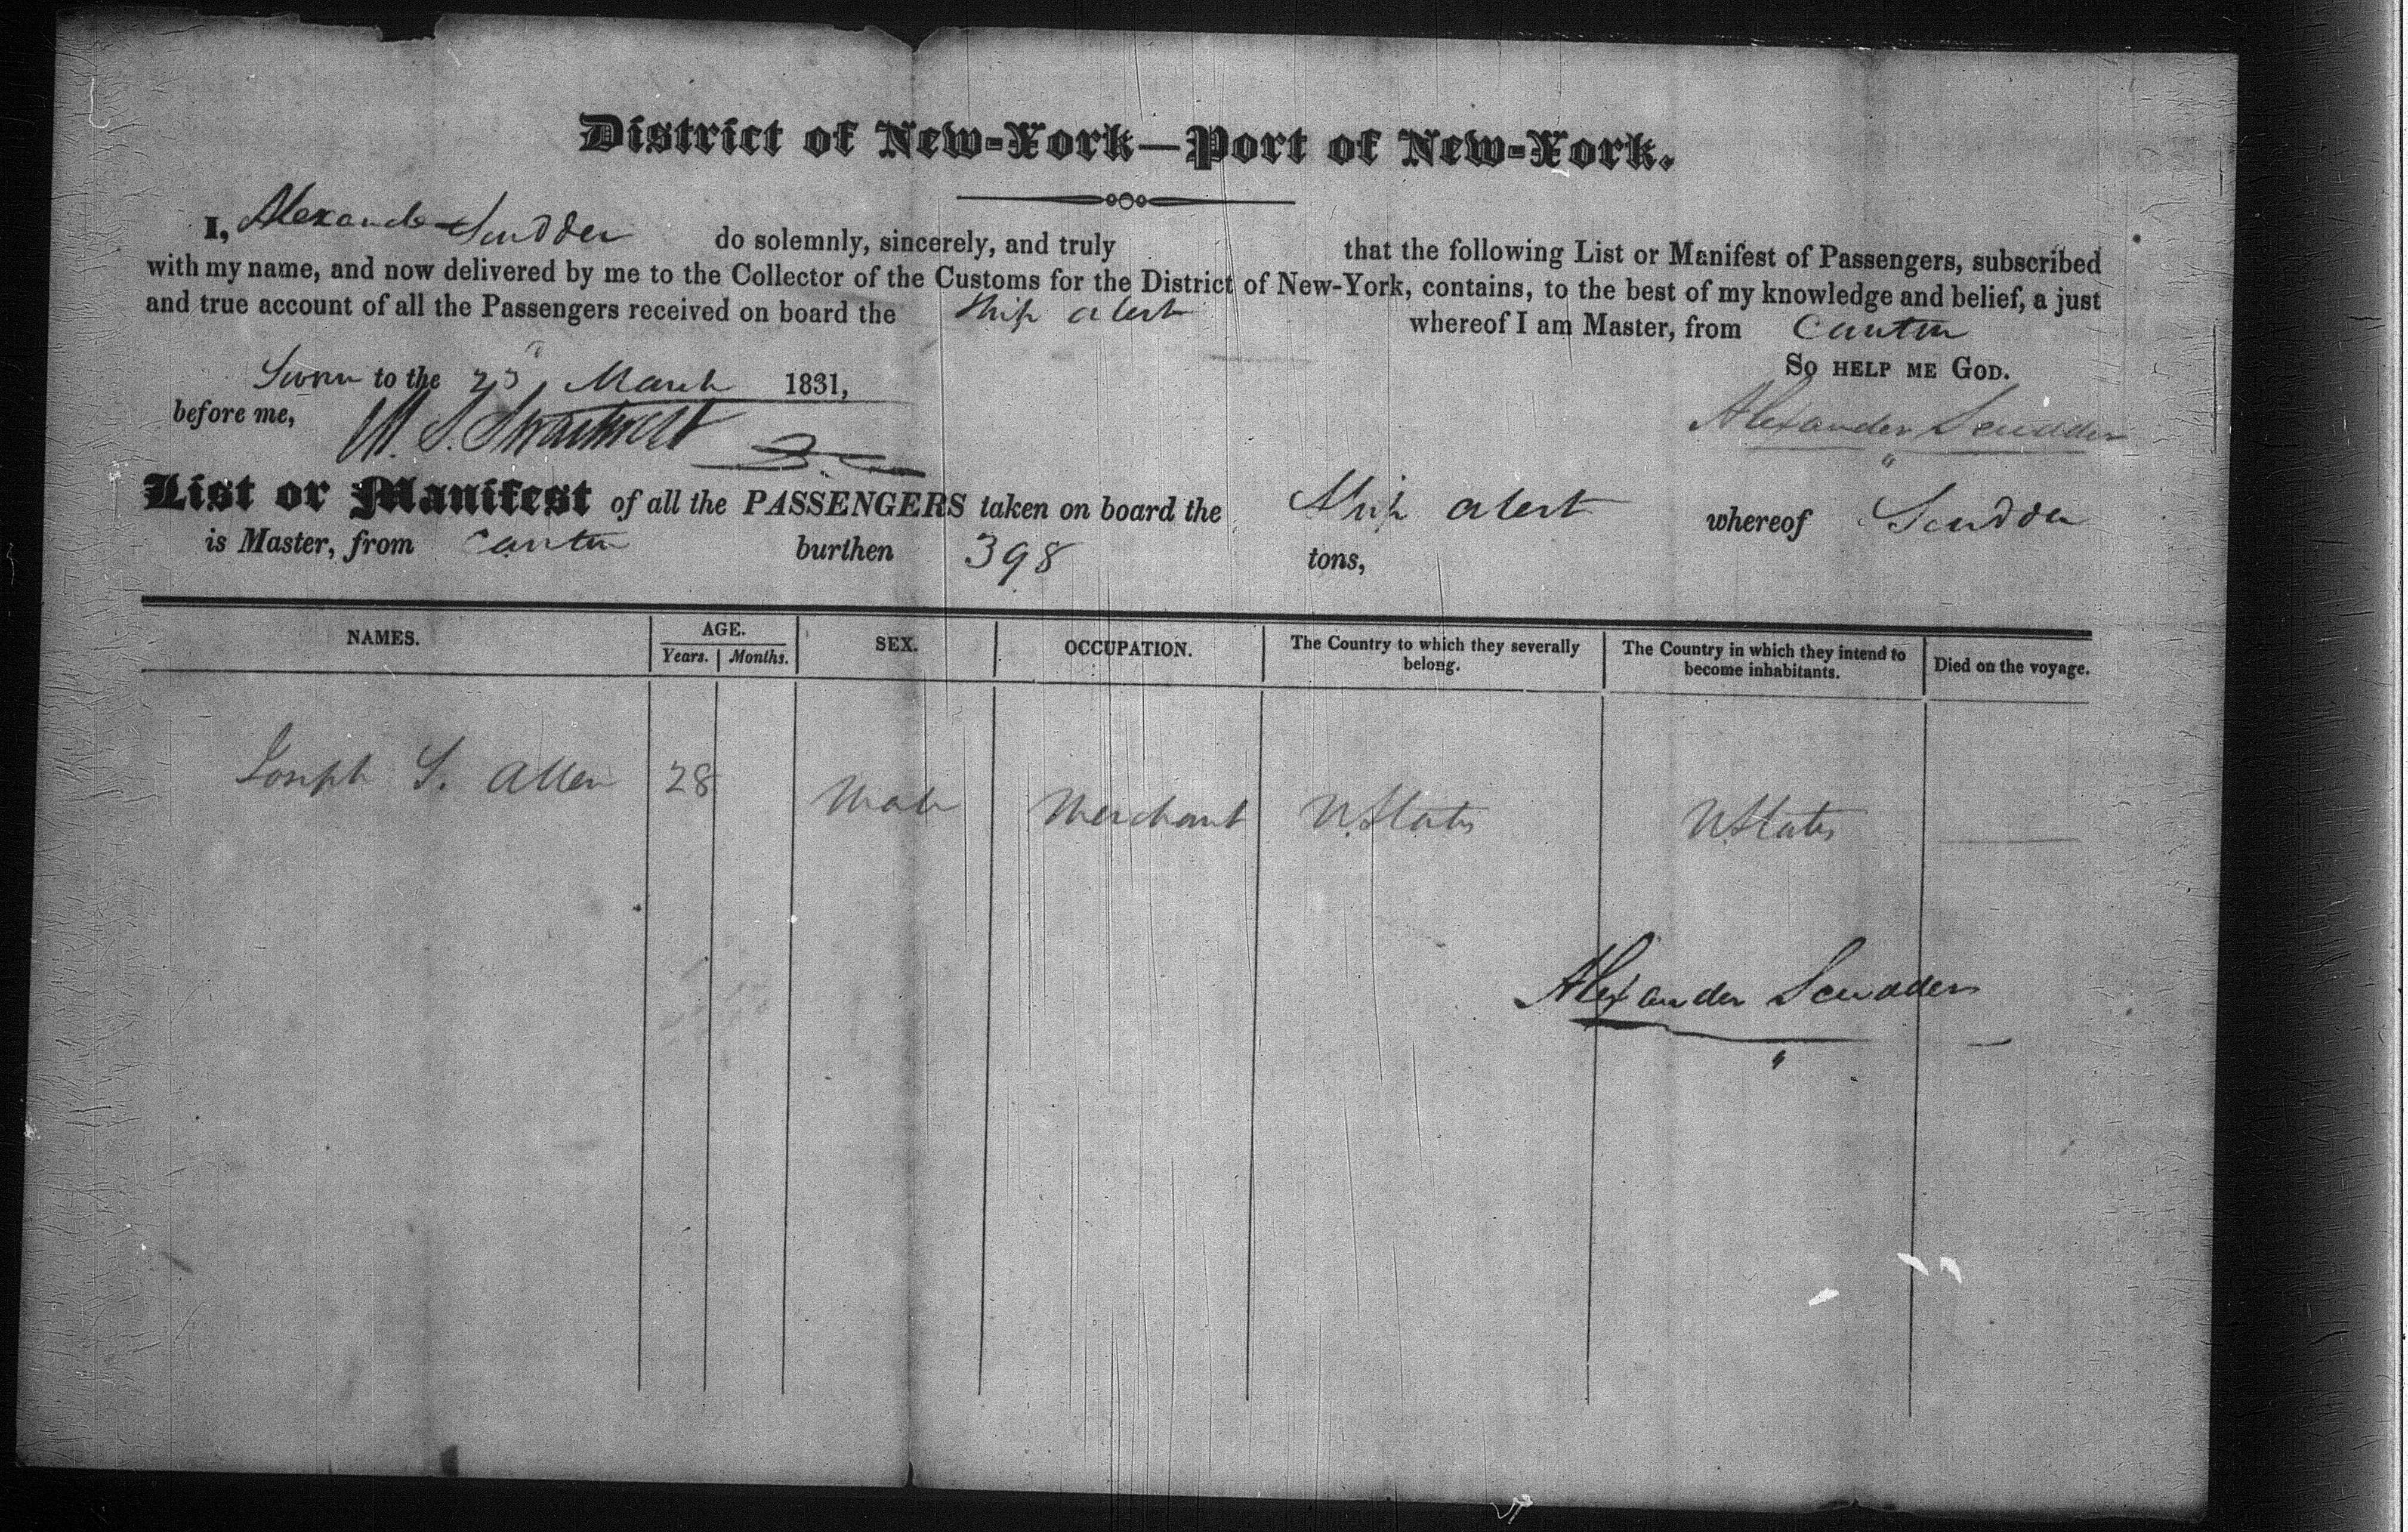 District of New-York—Port of New-York.
I, Alexander Scudder do solemnly, sincerely, and truly that the following List or Manifest of Passengers, subscribed
with my name, and now delivered by me to the Collector of the Customs for the District of New-York, contains, to the best of my knowledge and belief, a just
and true account of all the Passengers received on board the Ship alert whereof I am Master, from Canton
So HELP ME GOD.
Sworn to the March 1831,
before me,
Alexander Scudder
List or Manifest of all the PASSENGERS taken on board the Ship alert whereof Scudder
is Master, from Canton burthen 398 tons,
NAMES. AGE. Years. Months. SEX. OCCUPATION. The Country to which they severally belong. The Country in which they intend to become inhabitants. Died on the voyage.
Joseph S. Allen 28 Male Merchant U. States U. States
Alexander Scudder